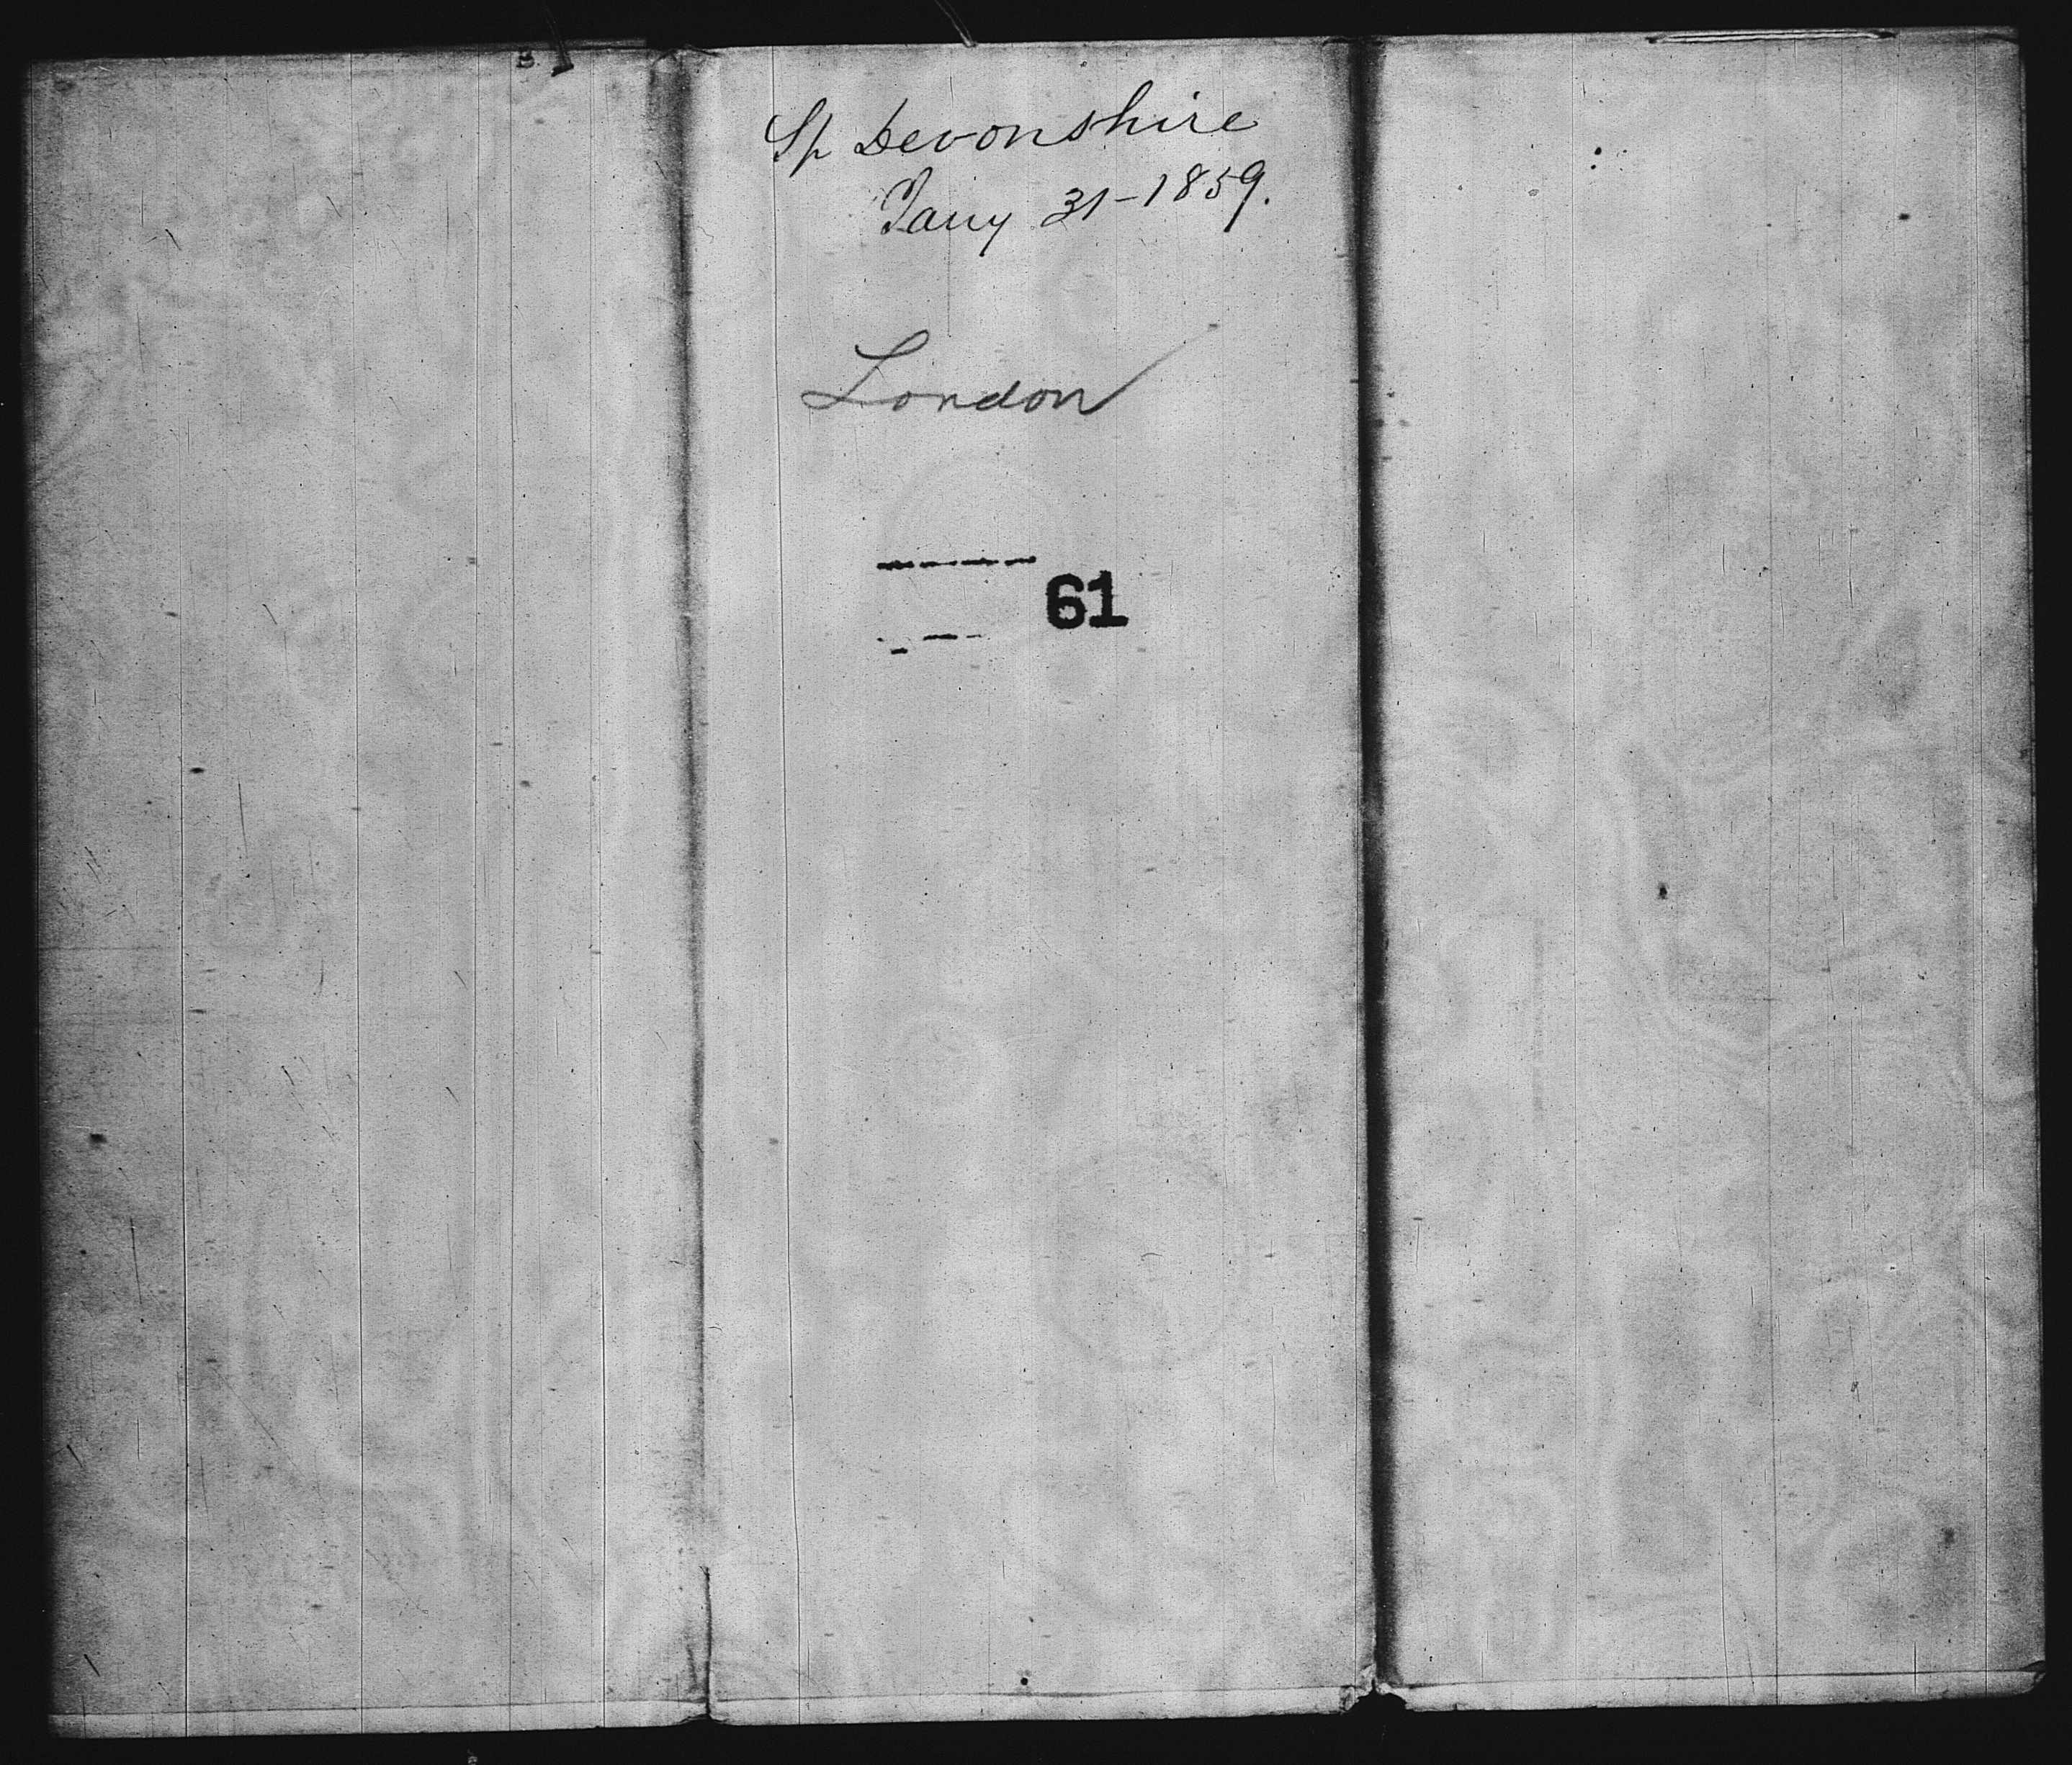 Sp Devonshire
Jany 31-1859.
London
61